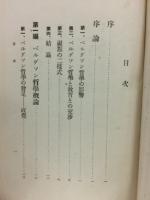 目次
序
序論
第一、ベルグソン哲學の影響
第二、ベルグソン哲學と敎育との交渉
第三、叙述の二樣式
第四、結論
第一編 ベルグソン哲學概論
第一、ベルグソン哲學の發生――直覺